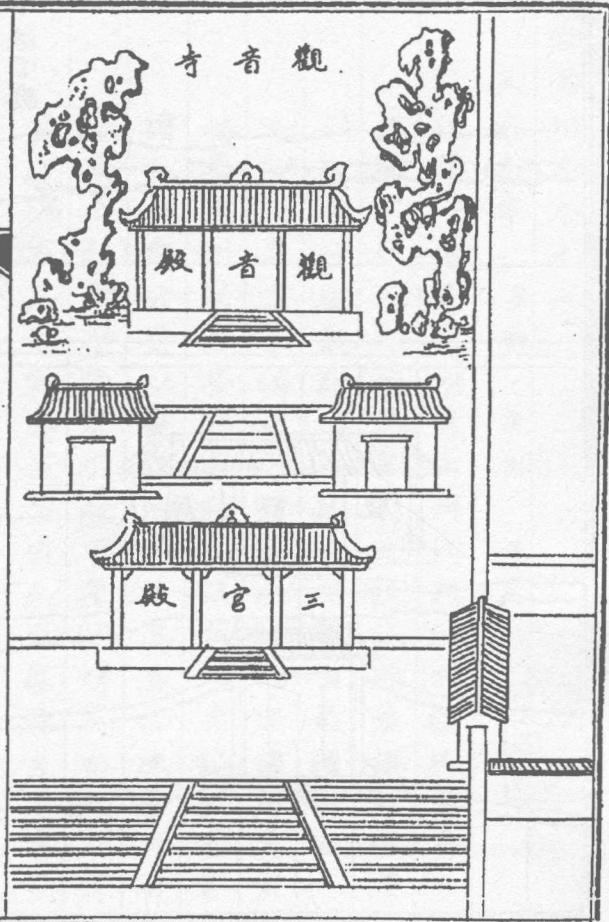 觀音寺
觀音殿
三官殿